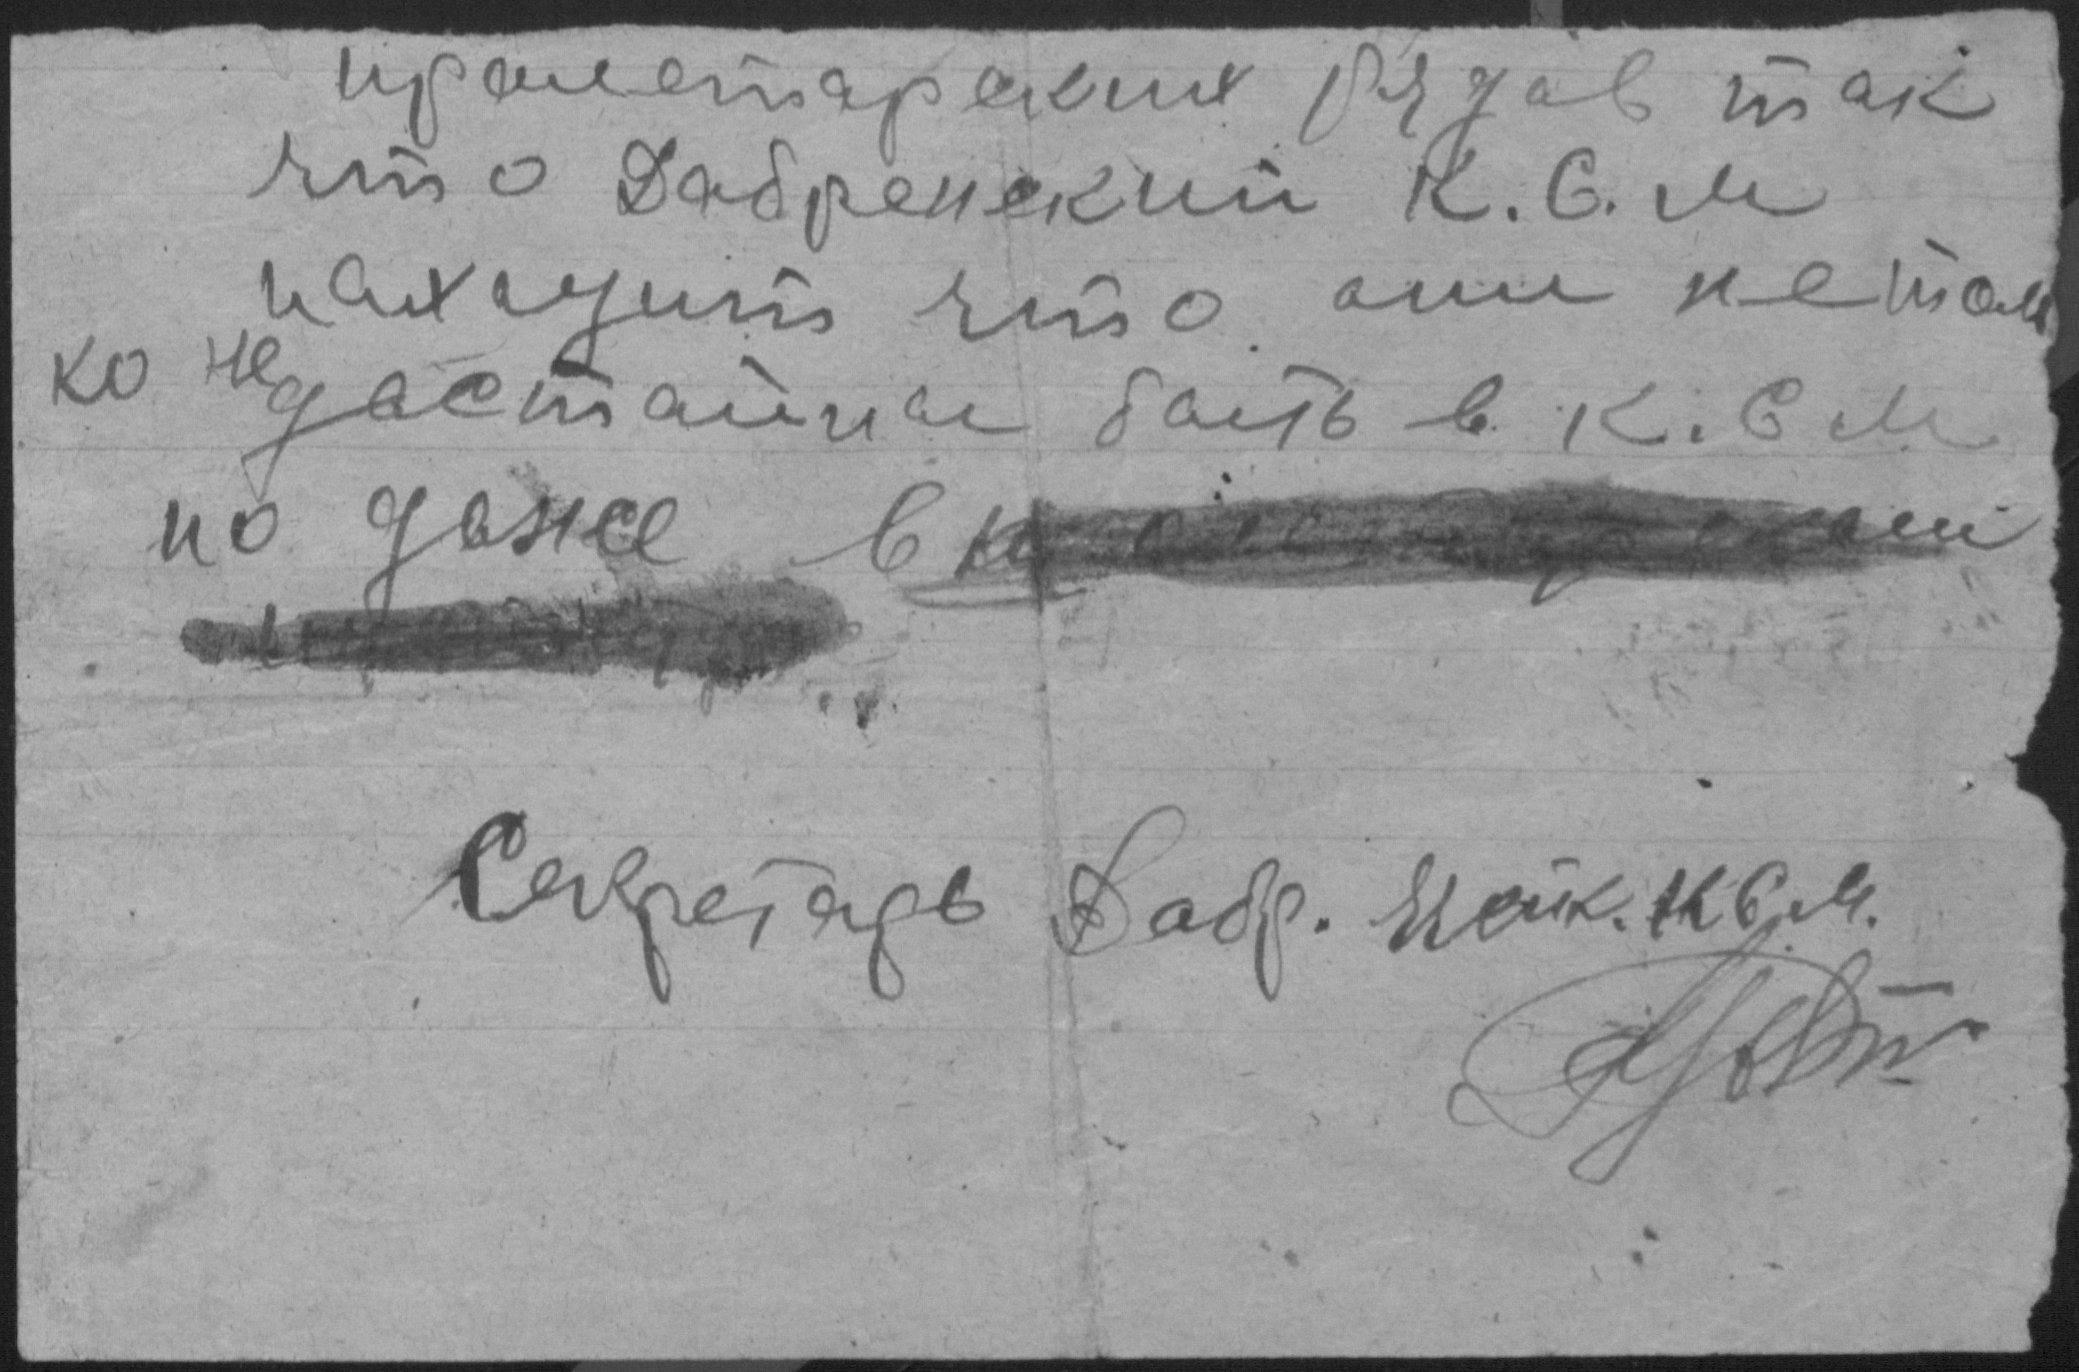 пралетарских рядав так
что Дабренский К.С.М
находит что они не толь
ко не дастайны быть в К.С.М
но даже в
Секретарь Дабр. Яцейк. КСМ.